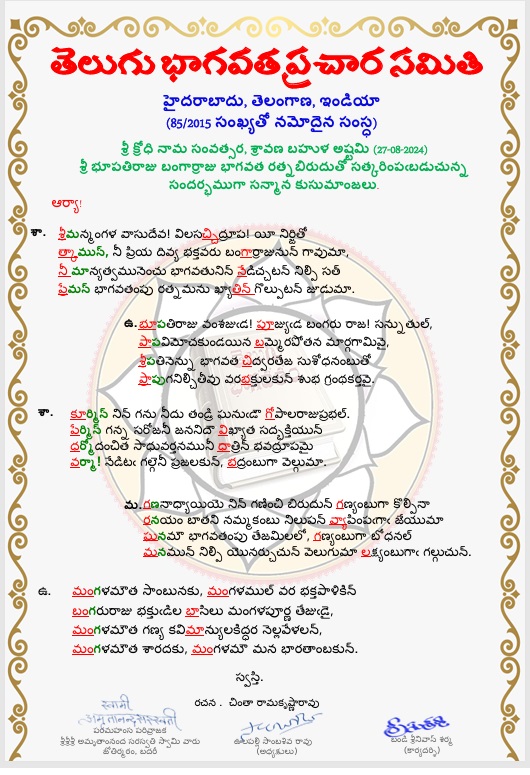 తెలుగు భాగవత ప్రచార సమితి
హైదరాబాదు, తెలంగాణ, ఇండియా
(85/2015 సంఖ్యతో నమోదైన సంస్థ)
శ్రీ క్రోధి నామ సంవత్సర, శ్రావణ బహుళ అష్టమి (27-08-2024)
శ్రీ భూపతిరాజు బంగార్రాజు భాగవత రత్న బిరుదుతో సత్కరింపఁబడుచున్న
సందర్భముగా సన్మాన కుసుమాంజలు.
ఆర్యా!
శా. శ్రీమన్మంగళ వాసుదేవ! విలసచ్చిద్రూప! యీ నిర్జితో
త్కాముస్, నీ ప్రియ దివ్య భక్తవరు బంగార్రాజునున్ గావుమా,
నీ మాన్యత్వమునెంచు భాగవతునిన్ నేడిచ్చటన్ నిల్పి సత్
ప్రేమన్ భాగవతంపు రత్నమను ఖ్యాతిన్ గొల్పుటన్ జూడుమా.
ఉ. భూపతిరాజు వంశజుఁడ! పూజ్యుఁడ బంగరు రాజ! సన్నుతుల్,
పాపవిమోచకుండయిన బమ్మెరపోతన మార్గగామివై,
శ్రీపతినెన్ను భాగవత చిద్వరతేజ సుశోధనంబుతో
ప్రాపుగనిల్చితీవు వరభక్తులకున్ శుభ గ్రంథకర్తవై.
శా. కూర్మిన్ నిన్ గను నీదు తండ్రి ఘనుఁడౌ గోపాలరాజుప్రభల్.
పేర్మిన్ గన్న సరోజనీ జననిదౌ విఖ్యాత సద్భక్తియున్
ధర్మోదంచిత సాధువర్తనమునీ ధాత్రిన్ భవద్రూపమై
వర్మా! నేడిటఁ గల్గెనీ ప్రజలకున్, భద్రంబుగా వెల్గుమా.
మ. గణనాధ్యాయియె నిన్ గణించి బిరుదున్ గణ్యంబుగా కొల్పినా
రనయం బాతని నమ్మకంబు నిలుపన్ వ్యాపింపఁగాఁ జేయుమా
ఘనమౌ భాగవతంపు తేజమిలలో, గణ్యంబుగా బోధనల్
మనమున్ నిల్పి యొనర్చుచున్ వెలుగుమా లక్ష్యంబుగాఁ గల్గుచున్.
ఉ. మంగళమౌత సాంబునకు, మంగళముల్ వర భక్తపాళికిన్
బంగరురాజు భక్తుఁడిల బాసిలు మంగళపూర్ణ తేజుఁడై,
మంగళమౌత గణ్య కవిమాన్యులకిద్ధర నెల్లవేళలన్,
మంగళమౌత శారదకు, మంగళమౌ మన భారతాంబకున్.
స్వస్తి.
రచన . చింతా రామకృష్ణారావు
పరమహంస పరివ్రాజక
శ్రీశ్రీశ్రీ అమృతానంద సరస్వతి స్వామి వారు
జోతిర్మఠం, బదరీ
ఊలపల్లి సాంబశివ రావు
(అధ్యక్షులు)
బండి శ్రీనివాస శర్మ
(కార్యదర్శి)